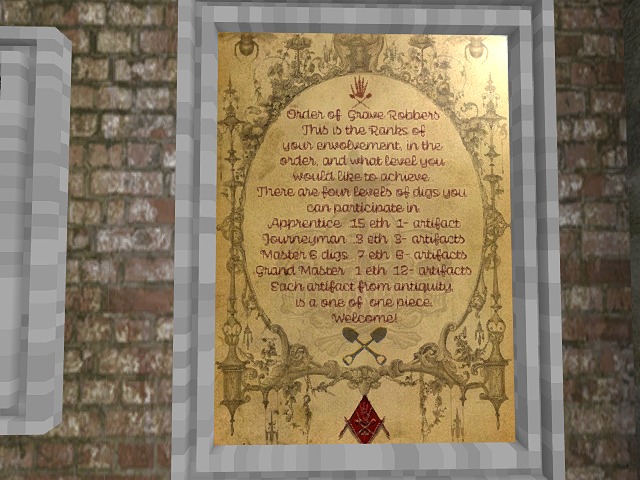 Order of Grave Robbers
This is the Ranks of
your envolvement, in the
order, and what level you
would like to achieve.
There are four levels of digs you
can participate in
Apprentice .15 eth 1- artifact
Journeyman .3 eth 3- artifacts
Master 6 digs .7 eth 6- artifacts
Grand Master 1 eth 12- artifacts
Each artifact from antiquity,
is a one of one piece.
Welcome!